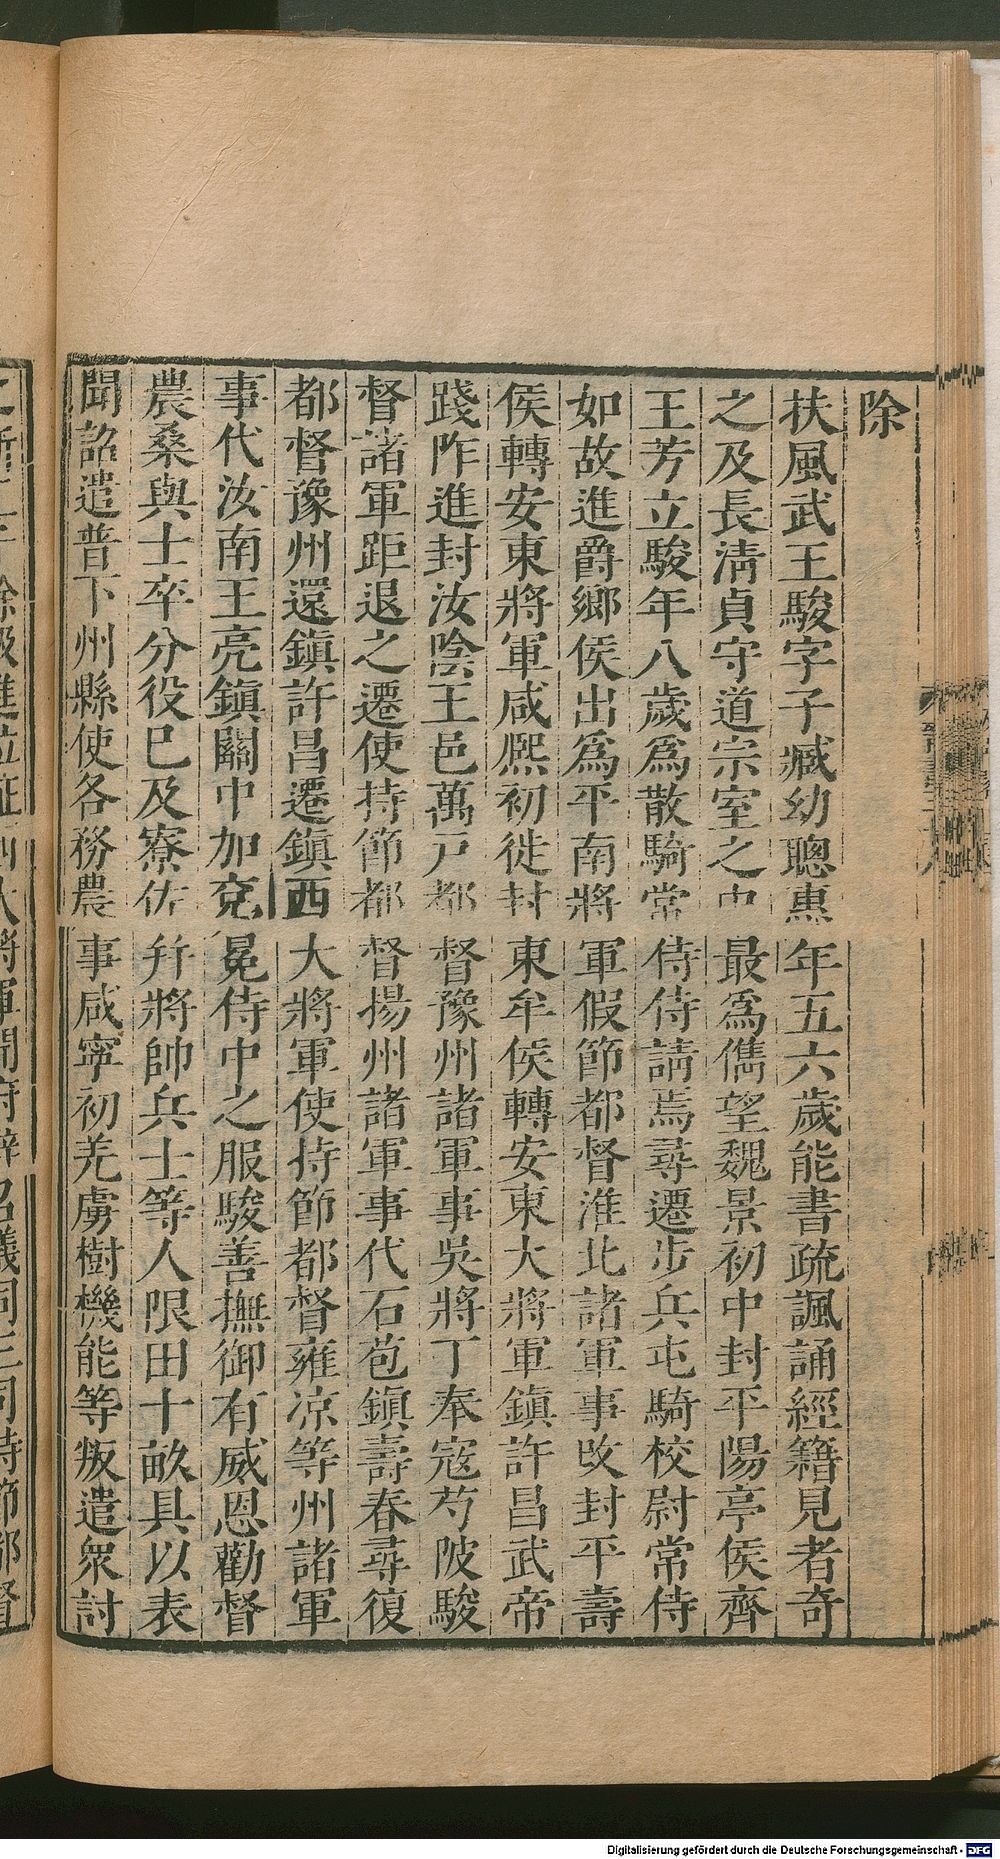 除
扶風武王駿字子臧幼聰惠年五六歲能書疏諷誦經籍見者奇
之及長淸貞守道宗室之中最爲儁望魏景初中封平陽亭侯齊
王芳立駿年八歲爲散騎常侍侍請焉尋遷步兵屯騎校尉常侍
如故進爵鄉侯出爲平南將軍假節都督淮北諸軍事改封平壽
侯轉安東將軍咸熙初徙封東牟侯轉安東大將軍鎮許昌武帝
踐阼進封汝陰王邑萬戸都督豫州諸軍事吳將丁奉寇芍陂駿
督諸軍距退之遷使持節都督揚州諸軍事代石苞鎮壽春尋復
都督豫州還鎮許昌遷鎮西大將軍使持節都督雍凉等州諸軍
事代汝南王亮鎮關中加兖冕侍中之服駿善撫御有威恩勸督
農桑與士卒分役巳及寮佐幷將帥兵士等人限田十畝具以表
聞詔遣普下州縣使各務農事咸寧初羌虜樹機能等叛遣衆討
Digitalisierung gefördert durch die Deutsche Forschungsgemeinschaft - DFG